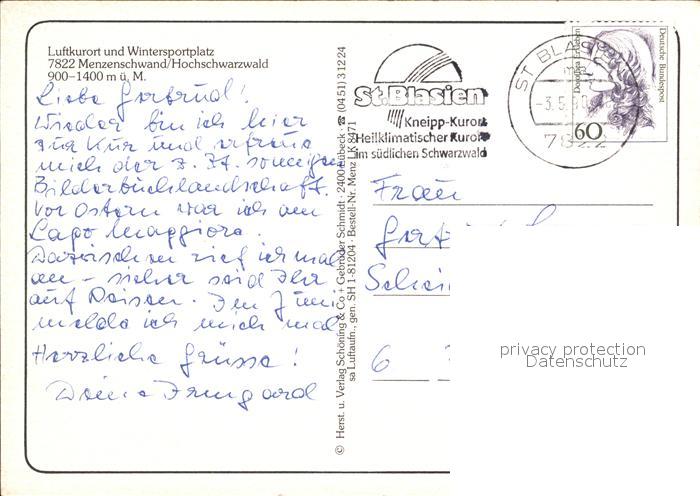 Luftkurort und Wintersportplatz
7822 Menzenschwand/Hochschwarzwald
900–1400 m ü. M.
Liebe Gertrud!
Wieder bin ich hier
zur Kur und erfreue
mich der z. Zt. sonnigen
Bilderbuchlandschaft.
Vor Ostern war ich am
Lago Maggiore.
Dazwischen rief ich mal
an – sicher seid Ihr
auf Reisen. Im Juni
melde ich mich mal
Herzliche Grüsse!
Deine Irmgard
© Herst. u. Verlag Schöning & Co + Gebrüder Schmidt · 2400 Lübeck · ☎ (04 51) 3 12 24
sa Luftaufn., gen. SH 1-81204 · Bestell-Nr. Menz LK 8471
St. Blasien
Kneipp-Kurort
Heilklimatischer Kurort
im südlichen Schwarzwald
ST BLASIEN
-3.5.90
7822
Dorothea Erxleben
Deutsche Bundespost
60
Frau
6
privacy protection
Datenschutz